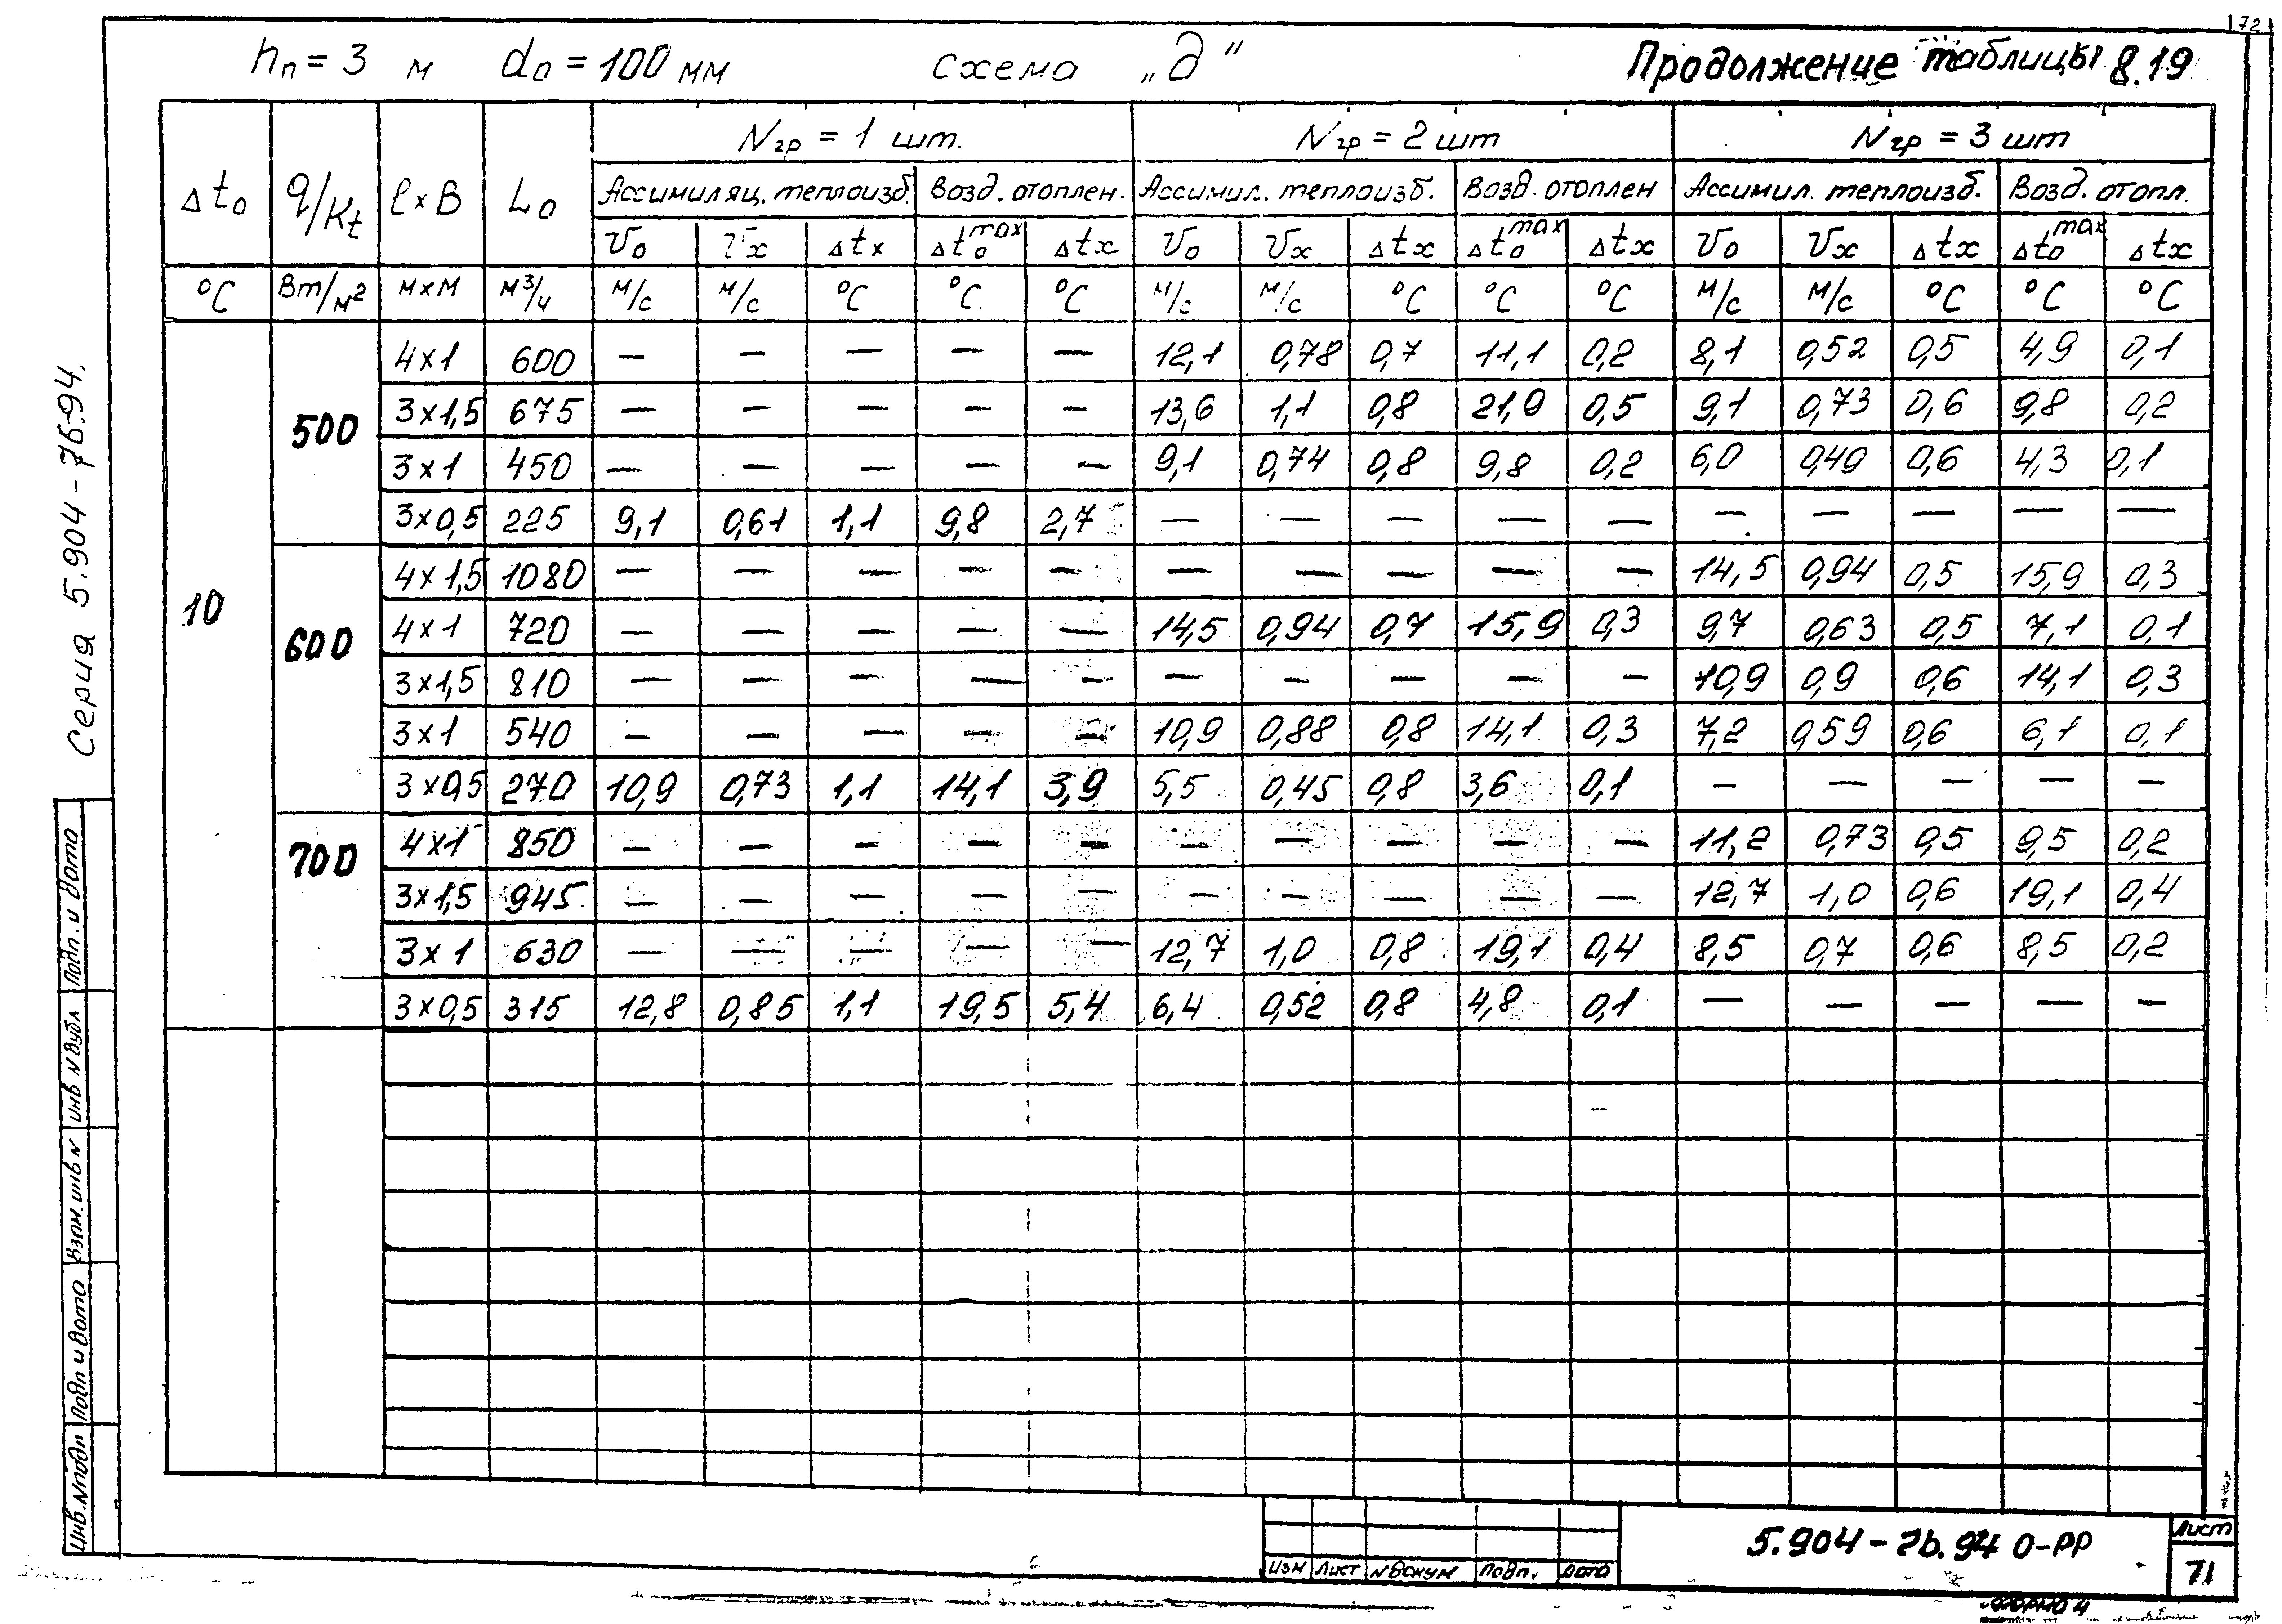 72
hп = 3 м dо = 100 мм схема „д" Продолжение таблицы 8.19
Δtо q/Kt l×B Lо Nгр = 1 шт. Nгр = 2 шт Nгр = 3 шт
Ассимиляц. теплоизб. Возд. отоплен. Ассимил. теплоизб. Возд. отоплен Ассимил. теплоизб. Возд. отопл.
Vо Vx Δtx Δtо max Δtx Vо Vx Δtx Δtо max Δtx Vо Vx Δtx Δtо max Δtx
°C Вт/м² м×м м³/ч м/с м/с °C °C °C м/с м/с °C °C °C м/с м/с °C °C °C
10
500
4×1 600 — — — — — 12,1 0,78 0,7 11,1 0,2 8,1 0,52 0,5 4,9 0,1
3×1,5 675 — — — — — 13,6 1,1 0,8 21,9 0,5 9,1 0,73 0,6 9,8 0,2
3×1 450 — — — — — 9,1 0,74 0,8 9,8 0,2 6,0 0,49 0,6 4,3 0,1
3×0,5 225 9,1 0,61 1,1 9,8 2,7 — — — — — — — — — —
600
4×1,5 1080 — — — — — — — — — — 14,5 0,94 0,5 15,9 0,3
4×1 720 — — — — — 14,5 0,94 0,7 15,9 0,3 9,7 0,63 0,5 7,1 0,1
3×1,5 810 — — — — — — — — — — 10,9 0,9 0,6 14,1 0,3
3×1 540 — — — — — 10,9 0,88 0,8 14,1 0,3 7,2 0,59 0,6 6,1 0,1
3×0,5 270 10,9 0,73 1,1 14,1 3,9 5,5 0,45 0,8 3,6 0,1 — — — — —
700
4×1 850 — — — — — — — — — — 11,2 0,73 0,5 9,5 0,2
3×1,5 945 — — — — — — — — — — 12,7 1,0 0,6 19,1 0,4
3×1 630 — — — — — 12,7 1,0 0,8 19,1 0,4 8,5 0,7 0,6 8,5 0,2
3×0,5 315 12,8 0,85 1,1 19,5 5,4 6,4 0,52 0,8 4,8 0,1 — — — — —
Серия 5.904-76.94.
Подп. и дата
Инв N дубл
Взам. инв N
Подп и дата
Инв. N подп
Изм Лист N докум Подп. Дата
5.904-76.94 0-РР
Лист
71